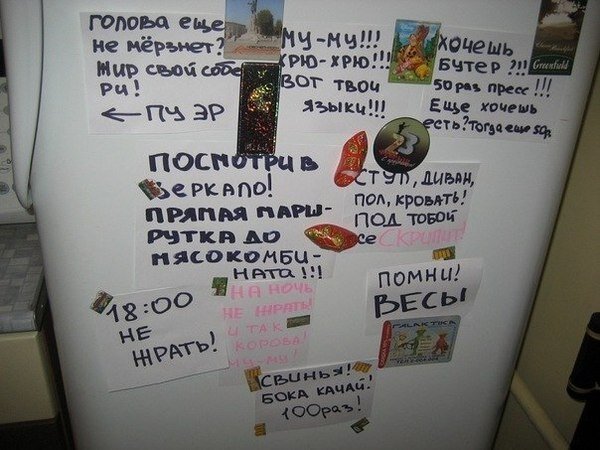 ГОЛОВА ЕЩЕ
НЕ МЁРЗНЕТ?
ЖИР СВОЙ СОБЕ
РИ!
← ПУ ЭР
МУ-МУ!!!
ХРЮ-ХРЮ!!!
ВОТ ТВОИ
ЯЗЫКИ!!!
ХОЧЕШЬ
БУТЕР?!!
50 РАЗ ПРЕСС!!!
ЕЩЕ ХОЧЕШЬ
ЕСТЬ? ТОГДА ЕЩЕ 50р.
Greenfield
23
ПОСМОТРИ В
ЗЕРКАЛО!
ПРЯМАЯ МАРШ-
РУТКА ДО
МЯСОКОМБИ-
НАТА!!!
СТУЛ, ДИВАН,
ПОЛ, КРОВАТЬ!
ПОД ТОБОЙ
все СКРИПИТ!
18:00
НЕ
ЖРАТЬ!
НА НОЧЬ
НЕ ЖРАТЬ!
И ТАК
КОРОВА!
МУ-МУ!
ПОМНИ!
ВЕСЫ
GALAKTIKA
СВИНЬЯ!
БОКА КАЧАЙ!
100 раз!